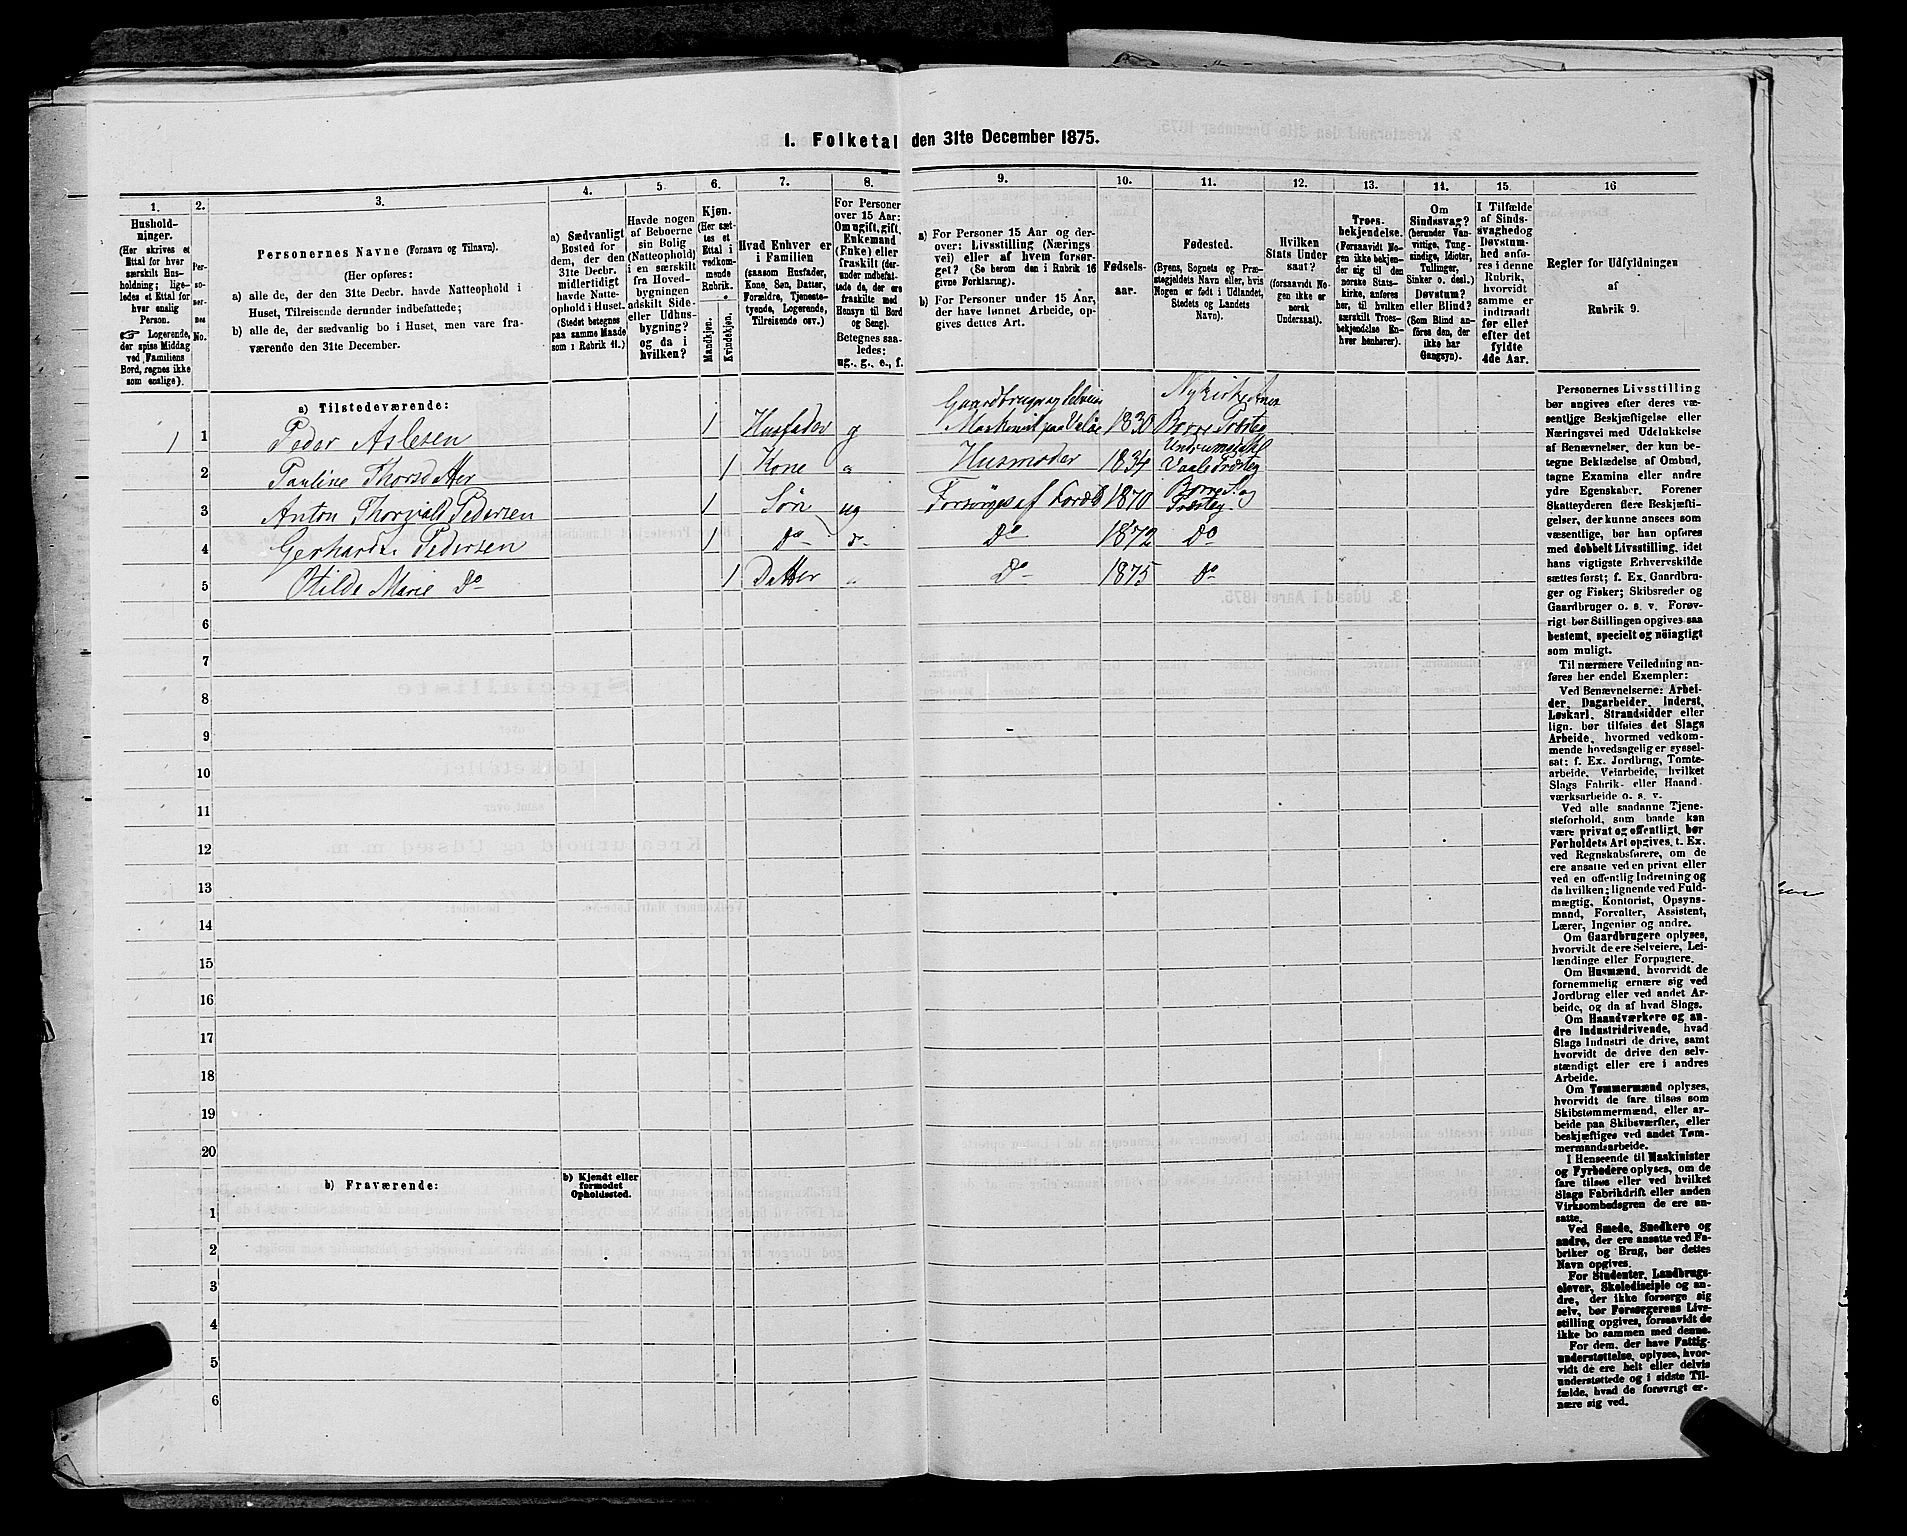 1. Folketal den 31te December 1875.
1.
Hushold-
ninger.
(Her skrives et
Ettal for hver
særskilt Hus-
holdning; lige-
ledes et Ettal for
hver enslig
Person.
Logerende,
der spise Middag
ved Familiens
Bord, regnes ikke
som enslige).
2.
Per-
so-
ner-
nes
No.
3.
Personernes Navne (Fornavn og Tilnavn).
(Her opføres:
a) alle de, der den 31te Decbr. havde Natteophold i
Huset, Tilreisende derunder indbefattede;
b) alle de, der sædvanlig bo i Huset, men vare fra-
værende den 31te December.
4.
a) Sædvanligt
Bosted for
dem, der den
31te Decbr.
midlertidigt
havde Natte-
ophold i Huset.
(Stedet betegnes
paa samme Maade
som i Rubrik 11.)
5.
Havde nogen
af Beboerne
sin Bolig
(Natteophold)
i en særskilt
fra Hoved-
bygningen
adskilt Side-
eller Udhus-
bygning? og
og da i
hvilken?
6.
Kjøn.
(Her sæt-
tes et
Ettal i
vedkom-
mende
Rubrik.
Mandkjøn.
Kvindekjøn.
7.
Hvad Enhver er
i Familien
(saasom Husfader,
Kone, Søn, Datter,
Forældre, Tjeneste-
tyende, Logerende,
Tilreisende osv.)
8.
For Personer
over 15 Aar:
Om ugift, gift,
Enkemand
(Enke) eller
fraskilt (der-
under indbefat-
tede de, der ere
fraskilte med
Hensyn til Bord
og Seng).
Betegnes saa-
ledes:
ug., g., e., f.
9.
a) For Personer 15 Aar og der-
over: Livsstilling (Nærings-
vei) eller af hvem forsør-
get? (Se herom den i Rubrik 16
givne Forklaring).
b) For Personer under 15 Aar,
der have lønnet Arbeide, op-
gives dettes Art.
10.
Fødsels-
aar.
11.
Fødested.
(Byens, Sognets og Præ-
stegjeldets Navn eller, hvis
Nogen er født i Udlandet,
Stedets og Landets
Navn).
12.
Hvilken
Stats Under
saat?
(forsaavidt
Nogen ikke er
norsk
Undersaat).
13.
Troes-
bekjendelse.
(Forsaavidt No-
gen ikke bekjen-
der sig til den
norske Stats-
kirke, anføres
her, til hvilken
særskilt Troes-
bekjendelse En-
hver henhører).
14.
Om
Sindssvag?
(herunder Van-
vittige, Tung-
sindige, Idioter,
Tullinger,
Sinker o. desl.)
Døvstum?
eller Blind?
(Som Blind an-
føres den, der
ikke har
Gangsyn).
15.
I Tilfælde
af Sinds-
svaghed og
Døvstum-
hed anfø-
res i denne
Rubrik,
hvorvidt
samme er
indtraadt
før eller
efter det
fyldte
4de Aar.
16
Regler for Udfyldningen
af
Rubrik 9.
a) Tilstedeværende:
1 1 Peder Aslesen 1 Husfader g Gaardbruger og Selveier Maskinist 1830 Nykirke Borre Præsteg
2 Pauline Thorsdatter 1 Kone Husmoder 1834 Vaale Præsteg
3 Anton Thorvald Pedersen 1 Søn ug Forsørges af Foræld 1870 Borre S. og Præsteg.
4 Gerhard Pedersen 1 Do Do 1872 Do
5 Otilde Marie Do 1 Datter Do 1875 Do
6
7
8
9
10
11
12
13
14
15
16
17
18
19
20
b) Fraværende:
b) Kjendt eller
formodet
Opholdssted.
1
2
3
4
5
6
Personernes Livsstilling
bør angives efter deres væ-
sentlige Beskjæftigelse eller
Næringsvei med Udelukkelse
af Benævnelser, der kun be-
tegne Beklædelse af Ombud,
tagne Examina eller andre
ydre Egenskaber. Forener
Skatteyderen flere Beskjæfti-
gelser, der kunne ansees som
væsentlige, bør han opføres
med dobbelt Livsstilling, idet
hans vigtigste Erhvervskilde
sættes først; f. Ex. Gaardbru-
ger og Fisker; Skibsreder og
Gaardbruger o. s. v. Forøv-
rigt bør Stillingen opgives saa
bestemt, specielt og nöiagtigt
som muligt.
Til nærmere Veiledning an-
føres her endel Exempler:
Ved Benævnelserne: Arbei-
der, Dagarbeider, Inderst,
Løskarl, Strandsidder eller
lign. bør tilføies det Slags
Arbeide, hvormed vedkom-
mende hovedsagelig er syssel-
sat; f. Ex. Jordbrug, Tomte-
arbeide, Veiarbeide, hvilket
Slags Fabrik- eller Haand-
værksarbeide o. s. v.
Ved alle saadanne Tjene-
steforhold, som baade kan
være privat og offentligt, bør
Forholdets Art opgives, t. Ex.
ved Regnskabsførere, om de
ere ansatte ved en privat eller
ved en offentlig Indretning og
da hvilken; lignende ved Fuld-
mægtig, Kontorist, Opsyns-
mand, Forvalter, Assistent,
Lærer, Ingeniør og andre.
Om Gaardbrugere oplyses,
hvorvidt de ere Selveiere, Lei-
lændinge eller Forpagtere.
Om Husmænd, hvorvidt de
fornemmelig ernære sig ved
Jordbrug eller ved andet Ar-
beide, og da af hvad Slags.
Om Haandværkere og an-
dre Industridrivende, hvad
Slags Industri de drive, samt
hvorvidt de drive den selv-
stændigt eller ere i andres
Arbeide.
Om Tømmermænd oplyses,
hvorvidt de fare tilsøs som
Skibstømmermænd, eller ar-
beide paa Skibsværfter, eller
beskjæftiges ved andet Tøm-
mermandsarbeide.
I Henseende til Maskinister
og Fyrbødere oplyses, om de
fare tilsøs eller ved hvilket
Slags Fabrikdrift eller anden
Virksomhedsgren de ere an-
satte.
Ved Smede, Snedkere og
andre, der ere ansatte ved Fa-
briker og Brug, bør dettes
Navn opgives.
For Studenter, Landbrugs-
elever, Skoledisciple og an-
dre, der ikke forsørge sig
selv, bør Forsørgerens Livs-
stilling opgives, forsaavidt de
ikke bo sammen med denne.
For dem, der have Fattig-
understøttelse, oplyses, hvor-
vidt de ere helt eller delvis
understøttede og i sidste Til-
fælde, hvad de forøvrigt er-
nære sig ved.